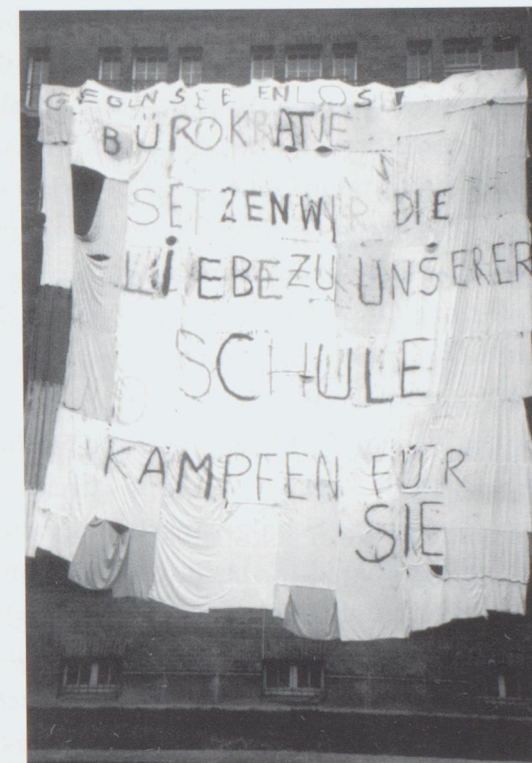 GEGEN SEELENLOSE
BÜROKRATIE
SETZEN WIR DIE
LIEBE ZU UNSERER
SCHULE
KÄMPFEN FÜR
SIE